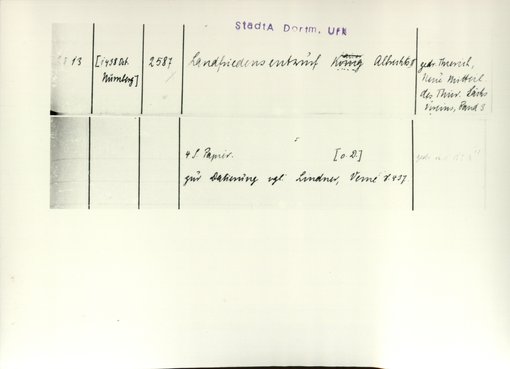 StadtA Dortm. UfN
13 [1438 Okt. 2587 Landfriedensentwurf König Albrechts
Nürnberg]
gedr.
Neue Mitteil.
des Thür. Sächs
Vereins, Band 3
4 S. Papier. [o. D.]
zur Datierung vgl. Lindner, Veme S. 437